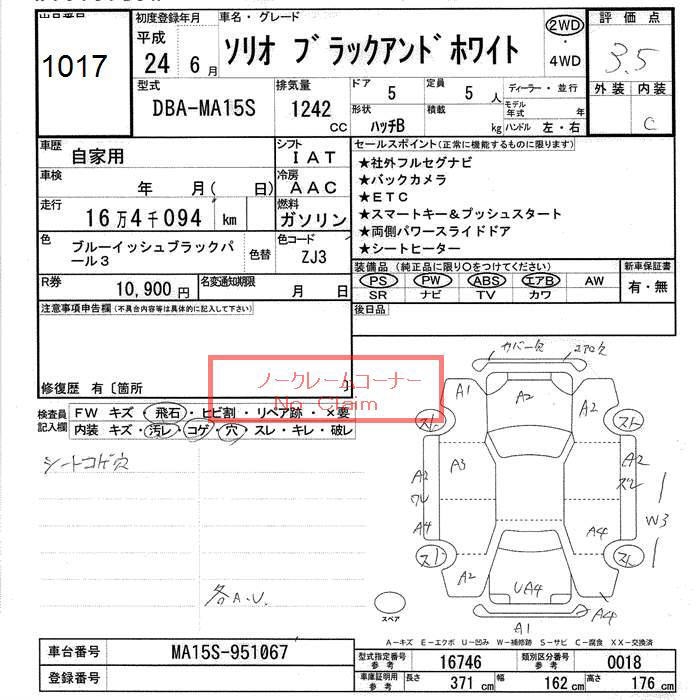 初度登録年月 車名・グレード 評価点
1017 平成 24 6月 ソリオ ブラックアンドホワイト 2WD・4WD 3.5
型式 排気量 ドア 5 定員 5人 ディーラー・並行 外装 内装
DBA-MA15S 1242 CC 形状 ハッチB 積載 kg モデル年式 年 C
ハンドル 左・右
車歴 自家用 シフト IAT セールスポイント(正常に機能するものに限ります)
★社外フルセグナビ
車検 年 月( 日) 冷房 AAC ★バックカメラ
★ETC
走行 16万4千094 km 燃料 ガソリン ★スマートキー&プッシュスタート
★両側パワースライドドア
色 ブルーイッシュブラックパール3 色替 色コード ZJ3 ★シートヒーター
R券 10,900円 名変通知期限 月 日 装備品 (純正品に限り○をつけてください) 新車保証書
PS PW ABS エアB AW 有・無
SR ナビ TV カワ
注意事項申告欄(不具合内容等は具体的に記入して下さい) 後日品
修復歴 有〔箇所 〕
ノークレームコーナー
No Claim
検査員記入欄 FW キズ・飛石・ヒビ割・リペア跡・×要
内装 キズ・汚レ・コゲ・穴・スレ・キレ・破レ
シートコゲ穴
各A.U.
カバー欠 エアロ欠
A1 A2 A2
スト スト
A2 A3 A2
ワレ ズレ
W3
A4 A4
スト スト
A2 UA4 A4
A1
スペア
A-キズ E-エクボ U-凹み W-補修跡 S-サビ C-腐食 XX-交換済
車台番号 MA15S-951067 型式指定番号 参考 16746 類別区分番号 参考 0018
登録番号 車庫証明用 参考 長さ 371 cm 幅 162 cm 高さ 176 cm